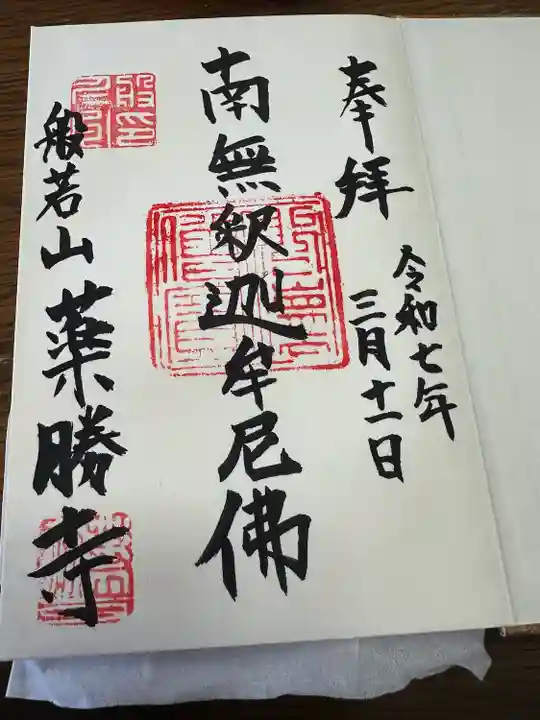 奉拝
令和七年
三月十一日
南無釈迦牟尼佛
般若山薬勝寺